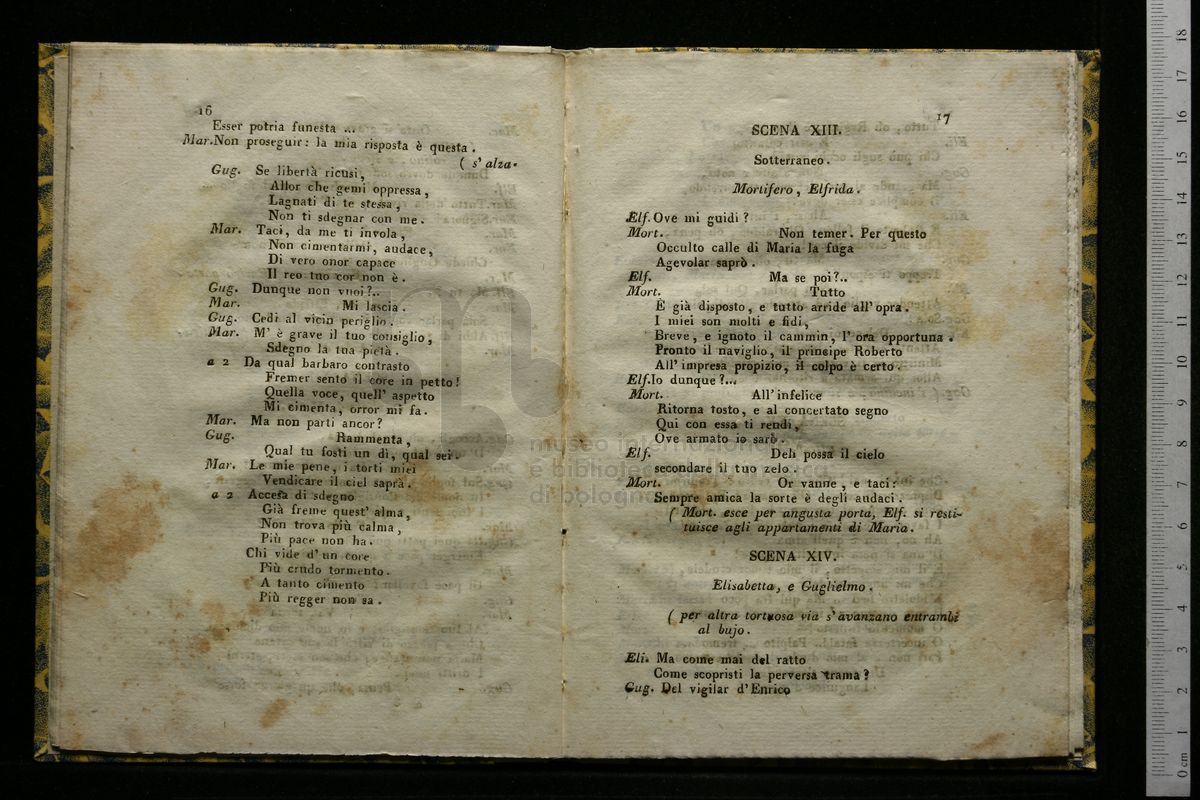 16
Esser potria funesta ...
Mar. Non proseguir: la mia risposta è questa.
( s' alza.
Gug. Se libertà ricusi,
Allor che gemi oppressa,
Lagnati di te stessa,
Non ti sdegnar con me.
Mar. Taci, da me t' invola,
Non cimentarmi, audace,
Di vero onor capace
Il reo tuo cor non è.
Gug. Dunque non vuoi?..
Mar. Mi lascia.
Gug. Cedi al vicin periglio.
Mar. M' è grave il tuo consiglio,
Sdegno la tua pietà.
a 2 Da qual barbaro contrasto
Fremer sento il core in petto!
Quella voce, quell' aspetto
Mi cimenta, orror mi fa.
Mar. Ma non parti ancor?
Gug. Rammenta,
Qual tu fosti un dì, qual sei.
Mar. Le mie pene, i torti miei
Vendicare il ciel saprà.
a 2 Accesa di sdegno
Già freme quest' alma,
Non trova più calma,
Più pace non ha.
Chi vide d' un core
Più crudo tormento.
A tanto cimento
Più regger non sa.
17
SCENA XIII.
Sotterraneo.
Mortifero, Elfrida.
Elf. Ove mi guidi?
Mort. Non temer. Per questo
Occulto calle di Maria la fuga
Agevolar saprò.
Elf. Ma se poi?..
Mort. Tutto
È già disposto, e tutto arride all' opra.
I miei son molti e fidi,
Breve, e ignoto il cammin, l' ora opportuna.
Pronto il naviglio, il principe Roberto
All' impresa propizio, il colpo è certo.
Elf. Io dunque?...
Mort. All' infelice
Ritorna tosto, e al concertato segno
Qui con essa ti rendi,
Ove armato io sarò.
Elf. Deh possa il cielo
secondare il tuo zelo.
Mort. Or vanne, e taci:
Sempre amica la sorte è degli audaci.
( Mort. esce per angusta porta, Elf. si resti-
tuisce agli appartamenti di Maria.
SCENA XIV.
Elisabetta, e Guglielmo.
( per altra tortuosa via s' avanzano entrambi
al bujo.
Eli. Ma come mai del ratto
Come scopristi la perversa trama?
Gug. Del vigilar d' Enrico
museo internazionale
e biblioteca della musica
di bologna
0 cm 1 2 3 4 5 6 7 8 9 10 11 12 13 14 15 16 17 18